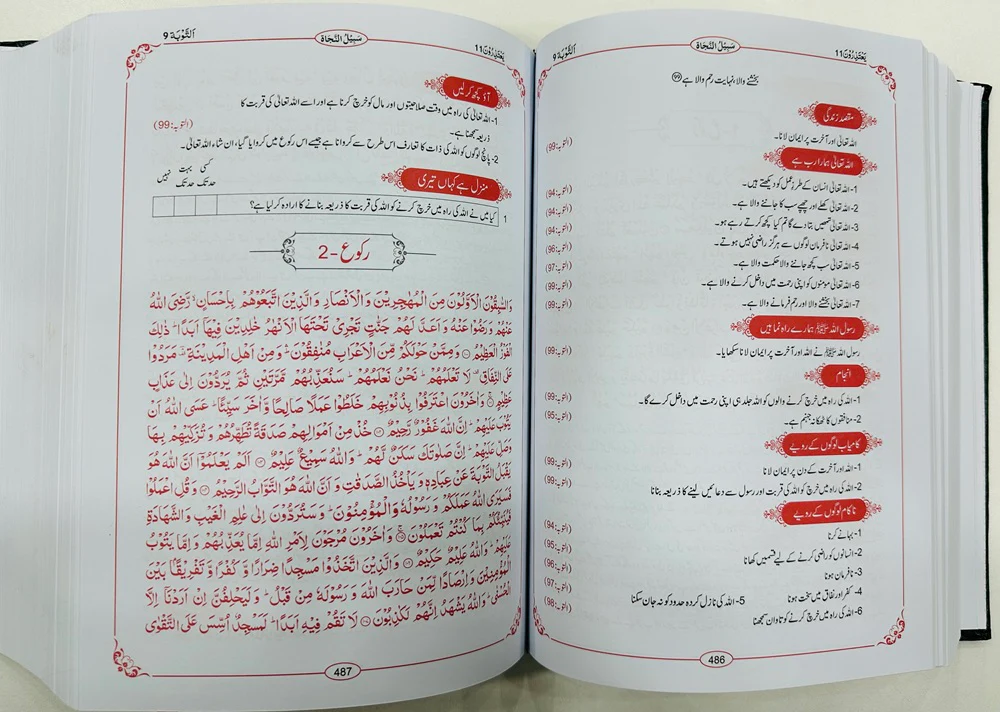 یَعْتَذِرُوْنَ 11
سَبِیْلُ النَّجَاۃ
اَلتَّوْبَة 9
بخشنے والا، نہایت رحم والا ہے ﴿99﴾
مقصد زندگی
اللہ تعالیٰ اور آخرت پر ایمان لانا۔ (التوبہ:99)
اللہ تعالیٰ ہمارا رب ہے
1- اللہ تعالیٰ انسان کے طرزِ عمل کو دیکھتے ہیں۔ (التوبہ:94)
2- اللہ تعالیٰ کھلے اور چھپے سب کا جاننے والا ہے۔ (التوبہ:94)
3- اللہ تعالیٰ تمھیں بتا دے گا تم کیا کچھ کرتے رہے ہو۔ (التوبہ:94)
4- اللہ تعالیٰ نافرمان لوگوں سے ہرگز راضی نہیں ہوتے۔ (التوبہ:96)
5- اللہ تعالیٰ سب کچھ جاننے والا حکمت والا ہے۔ (التوبہ:97)
6- اللہ تعالیٰ مؤمنوں کو اپنی رحمت میں داخل کرنے والا ہے۔ (التوبہ:99)
7- اللہ تعالیٰ بخشنے والا اور رحم فرمانے والا ہے۔ (التوبہ:99)
رسول اللہ ﷺ ہمارے راہ نما ہیں
رسول اللہ ﷺ نے اللہ اور آخرت پر ایمان لانا سکھایا۔ (التوبہ:99)
انجام
1- اللہ کی راہ میں خرچ کرنے والوں کو اللہ جلد ہی اپنی رحمت میں داخل کرے گا۔ (التوبہ:99)
2- منافقوں کا ٹھکانہ جہنم ہے۔ (التوبہ:95)
کامیاب لوگوں کے رویے
1- اللہ اور آخرت کے دن پر ایمان لانا (التوبہ:99)
2- اللہ کی راہ میں خرچ کو اللہ کی قربت اور رسول سے دعائیں لینے کا ذریعہ بنانا (التوبہ:99)
ناکام لوگوں کے رویے
1- بہانے کرنا (التوبہ:94)
2- انسانوں کو راضی کرنے کے لیے قسمیں کھانا (التوبہ:95)
3- نافرمان ہونا (التوبہ:96)
4- کفر اور نفاق میں سخت ہونا 5- اللہ کی نازل کردہ حدود کو نہ جان سکنا (التوبہ:97)
6- اللہ کی راہ میں خرچ کرنے کو تاوان سمجھنا (التوبہ:98)
486
یَعْتَذِرُوْنَ 11
سَبِیْلُ النَّجَاۃ
اَلتَّوْبَة 9
آؤ کچھ کرلیں
1- اللہ تعالیٰ کی راہ میں وقت صلاحیتوں اور مال کو خرچ کرنا ہے اور اسے اللہ تعالیٰ کی قربت کا
ذریعہ سمجھنا ہے۔ (التوبہ:99)
2- پانچ لوگوں کو اللہ کی ذات کا تعارف اس طرح سے کروانا ہے جیسے اس رکوع میں کروایا گیا، ان شاء اللہ تعالیٰ۔
منزل ہے کہاں تیری
کسی حد تک بہت حد تک نہیں
1 کیا میں نے اللہ کی راہ میں خرچ کرنے کو اللہ کی قربت کا ذریعہ بنانے کا ارادہ کر لیا ہے؟
رکوع -2
وَالسّٰبِقُوْنَ الْاَوَّلُوْنَ مِنَ الْمُهٰجِرِیْنَ وَالْاَنْصَارِ وَالَّذِیْنَ اتَّبَعُوْهُمْ بِاِحْسَانٍ ۙ رَّضِیَ اللّٰهُ
عَنْهُمْ وَرَضُوْا عَنْهُ وَاَعَدَّ لَهُمْ جَنّٰتٍ تَجْرِیْ تَحْتَهَا الْاَنْهٰرُ خٰلِدِیْنَ فِیْهَاۤ اَبَدًا ؕ ذٰلِكَ
الْفَوْزُ الْعَظِیْمُ وَمِمَّنْ حَوْلَكُمْ مِّنَ الْاَعْرَابِ مُنٰفِقُوْنَ ۛؕ وَمِنْ اَهْلِ الْمَدِیْنَةِ ؔۛ مَرَدُوْا
عَلَی النِّفَاقِ ۫ لَا تَعْلَمُهُمْ ؕ نَحْنُ نَعْلَمُهُمْ ؕ سَنُعَذِّبُهُمْ مَّرَّتَیْنِ ثُمَّ یُرَدُّوْنَ اِلٰی عَذَابٍ
عَظِیْمٍ وَاٰخَرُوْنَ اعْتَرَفُوْا بِذُنُوْبِهِمْ خَلَطُوْا عَمَلًا صَالِحًا وَّاٰخَرَ سَیِّئًا ؕ عَسَی اللّٰهُ اَنْ
یَّتُوْبَ عَلَیْهِمْ ؕ اِنَّ اللّٰهَ غَفُوْرٌ رَّحِیْمٌ خُذْ مِنْ اَمْوَالِهِمْ صَدَقَةً تُطَهِّرُهُمْ وَتُزَكِّیْهِمْ بِهَا
وَصَلِّ عَلَیْهِمْ ؕ اِنَّ صَلٰوتَكَ سَكَنٌ لَّهُمْ ؕ وَاللّٰهُ سَمِیْعٌ عَلِیْمٌ اَلَمْ یَعْلَمُوْۤا اَنَّ اللّٰهَ هُوَ
یَقْبَلُ التَّوْبَةَ عَنْ عِبَادِهٖ وَیَاْخُذُ الصَّدَقٰتِ وَاَنَّ اللّٰهَ هُوَ التَّوَّابُ الرَّحِیْمُ وَقُلِ اعْمَلُوْا
فَسَیَرَی اللّٰهُ عَمَلَكُمْ وَرَسُوْلُهٗ وَالْمُؤْمِنُوْنَ ؕ وَسَتُرَدُّوْنَ اِلٰی عٰلِمِ الْغَیْبِ وَالشَّهَادَةِ
فَیُنَبِّئُكُمْ بِمَا كُنْتُمْ تَعْمَلُوْنَ وَاٰخَرُوْنَ مُرْجَوْنَ لِاَمْرِ اللّٰهِ اِمَّا یُعَذِّبُهُمْ وَاِمَّا یَتُوْبُ
عَلَیْهِمْ ؕ وَاللّٰهُ عَلِیْمٌ حَكِیْمٌ وَالَّذِیْنَ اتَّخَذُوْا مَسْجِدًا ضِرَارًا وَّكُفْرًا وَّتَفْرِیْقًۢا بَیْنَ
الْمُؤْمِنِیْنَ وَاِرْصَادًا لِّمَنْ حَارَبَ اللّٰهَ وَرَسُوْلَهٗ مِنْ قَبْلُ ؕ وَلَیَحْلِفُنَّ اِنْ اَرَدْنَاۤ اِلَّا
الْحُسْنٰی ؕ وَاللّٰهُ یَشْهَدُ اِنَّهُمْ لَكٰذِبُوْنَ لَا تَقُمْ فِیْهِ اَبَدًا ؕ لَمَسْجِدٌ اُسِّسَ عَلَی التَّقْوٰی
487